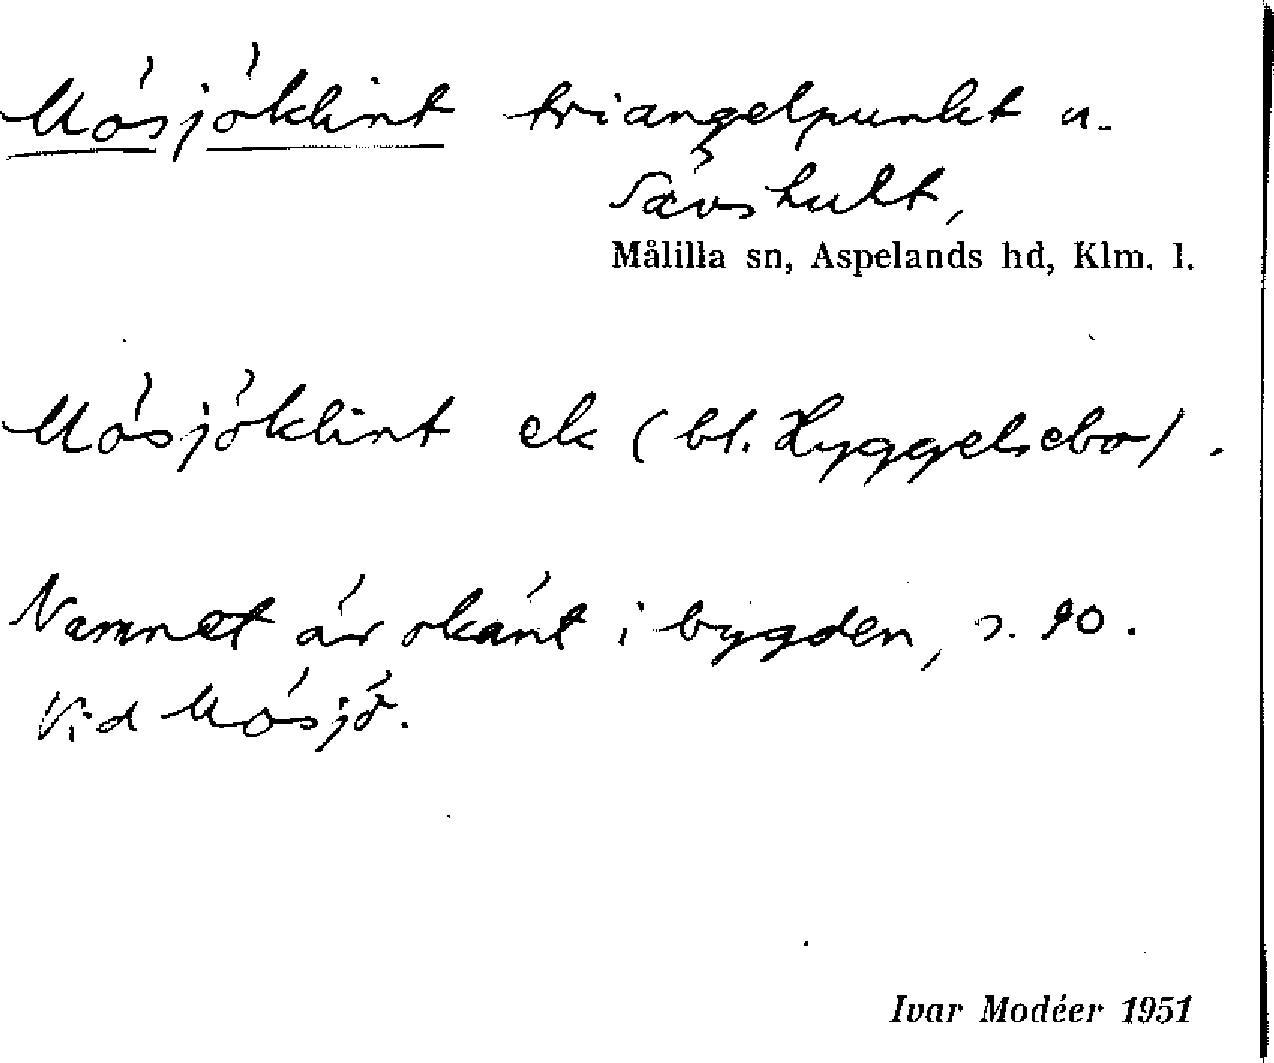 Mösjöklint triangelpunkt u.
Sävshult,
Målilla sn, Aspelands hd, Klm. l.
Mösjöklint ek (bl. Hyggelsebo).
Namnet är okänt i bygden, s. 90.
Vid Mösjö.
Ivar Modéer 1951